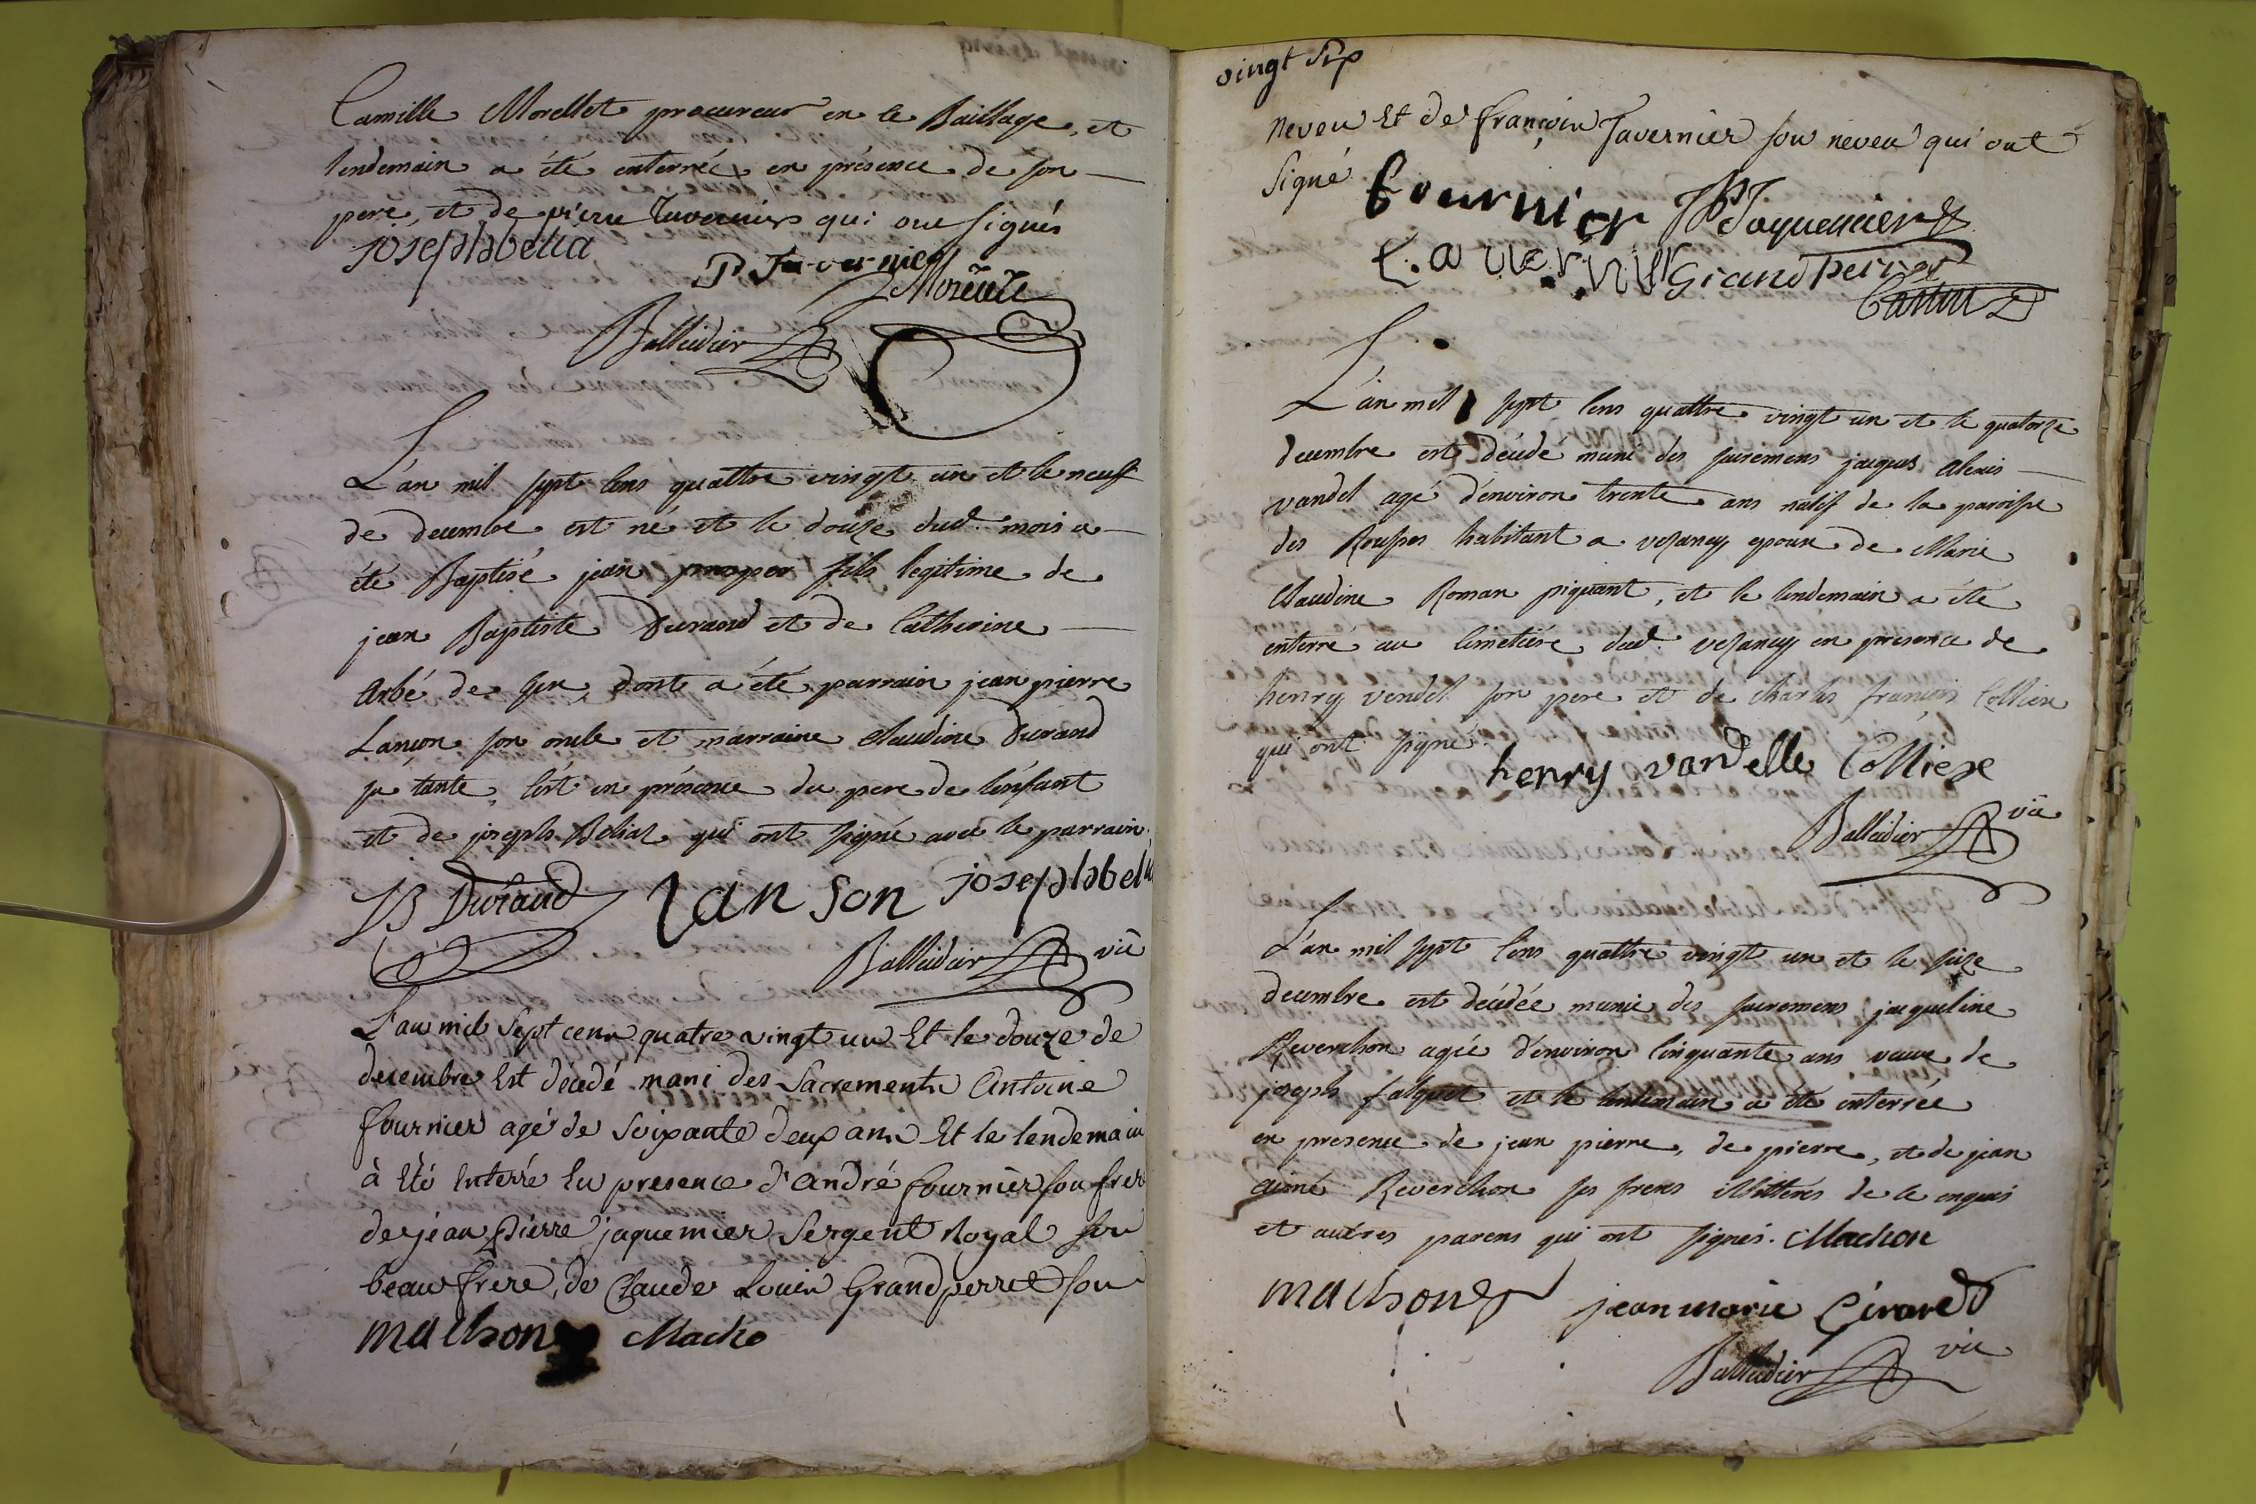 Camille Morellet procureur en ce Bailliage, et
lendemain a été enterrée en présence de son
pere, et de pierre Tavernier qui ont signés
joseph belia
P. Tavernier Morellet
Balleidier
L'an mil sept cens quattre vingt un et le neuf
de decembre est né et le douze dud. mois a
été Baptisé jean prosper fils legitime de
jean Baptiste Durand et de Catherine
Arbé de Gex, dont a été parrain jean pierre
Lançon son oncle et marraine Claudine Durand
sa tante, c'est en présence du pere de l'enfant
et de joseph Beliat qui ont signé avec le parrain.
JB Durand lanson joseph belia
Balleidier vic
L'an mil Sept cens quatre vingt un Et le douze de
decembre Est décedé muni des Sacrements Antoine
fournier agé de Soixante deux ans Et le lendemain
à Eté Enterré En presence d'andré fournier son frere
de jéan Pierre jaquemier Sergent Royal son
beau frere, de Claude Louis Grandperret son
machon Macho
vingt sep
neveu Et de françois Tavernier son neveu qui ont
Signé
fournier JP Jaquemier
f. tavernier Grandperret
L'an mil sept cens quattre vingt un et le quatorze
decembre est décédé muni des sacremens jacques Alexis
vandel agé d'environ trente ans natif de la paroisse
des Rousses habitant a vesancy epoux de Marie
Claudine Roman piquant, et le lendemain a été
enterré au cimetière dud. vesancy en presence de
henry vendel son pere et de charles françois Colliex
qui ont signé.
henry vandelle Colliex
Balleidier vic
L'an mil sept cens quattre vingt un et le seize
decembre est décédée munie des sacremens jacqueline
Reverchon agée d'environ cinquante ans veuve de
joseph falquet et le lendemain a été enterrée
en presence de jean pierre, de pierre, et de jean
aimé Reverchon ses freres illitterés de ce enquis
et autres parens qui ont signés. Machon
machon jean marie Girard
Balleidier vic